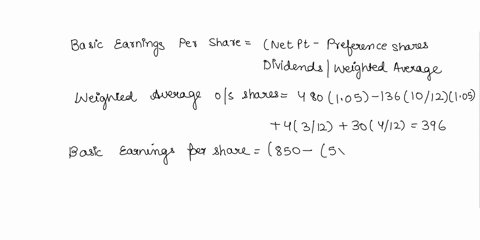 Basic Earnings Per Share = (Net Pt - Preference shares
Dividends/Weighted Average
Weighted Average o/s shares = 480(1.05)-136(10/12)(1.05)
+4(3/12)+30(4/12)=396
Basic Earnings per share = (850-(5